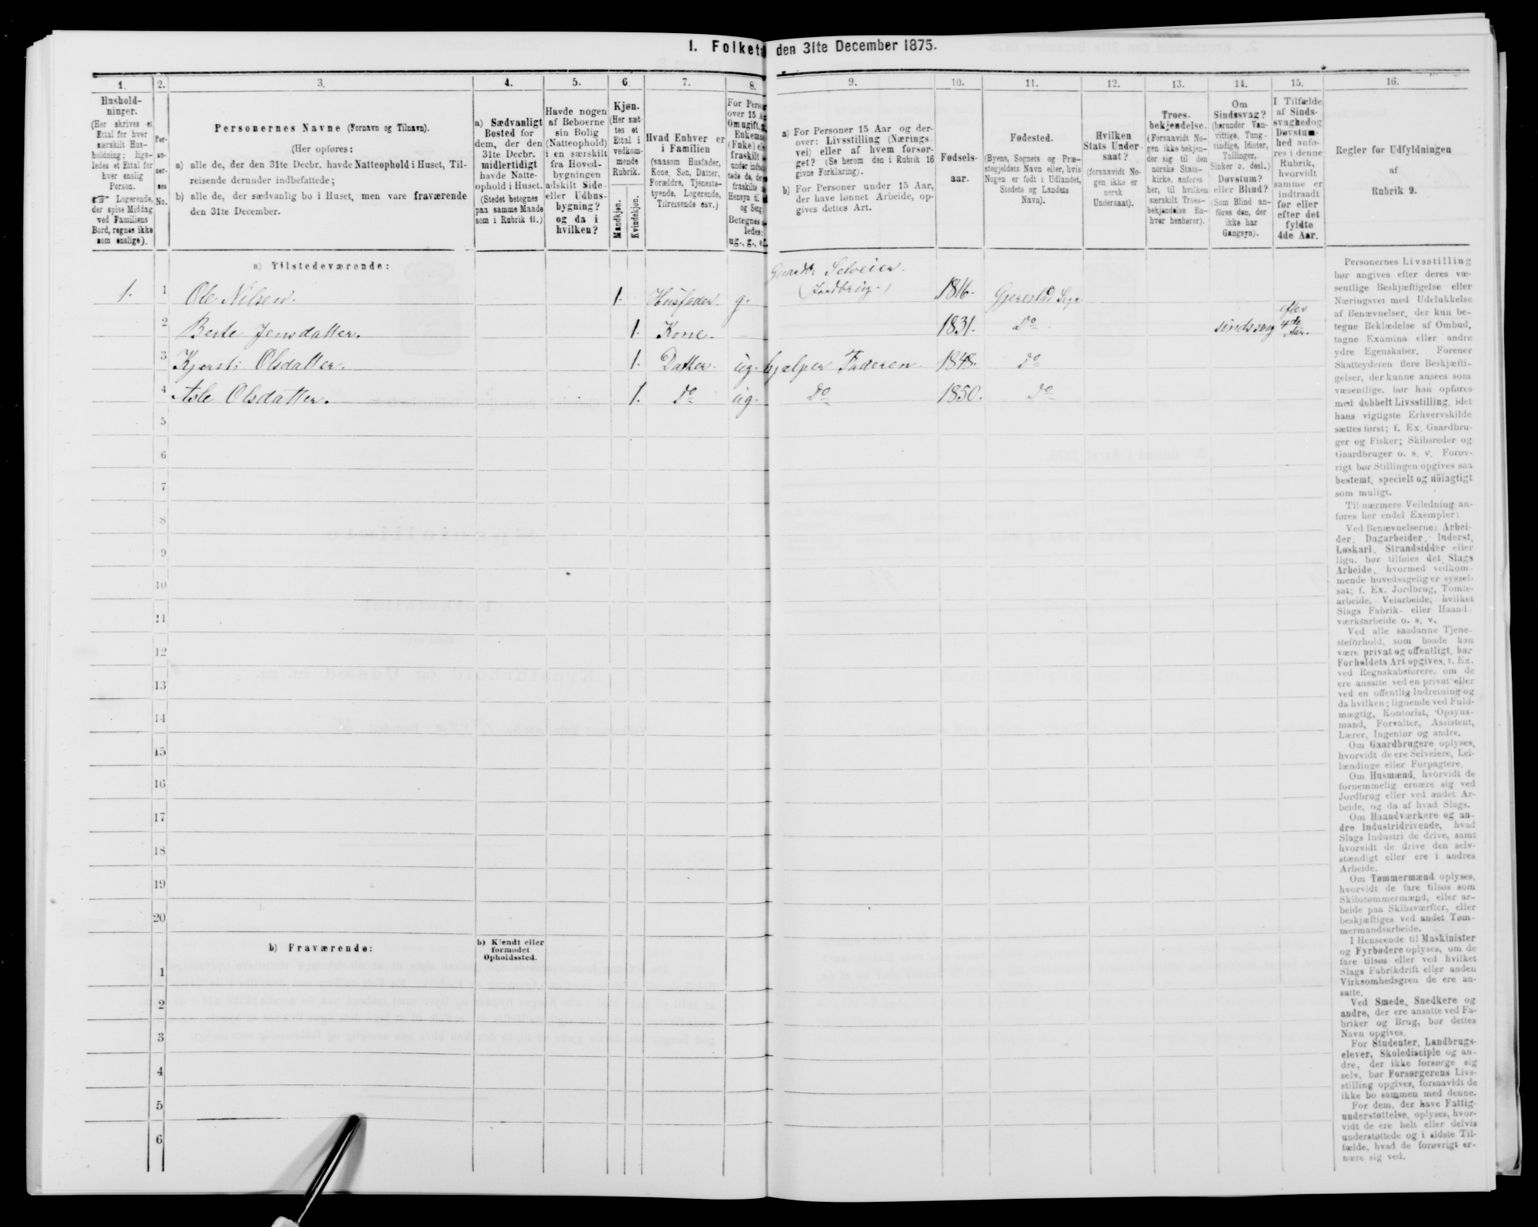 1. Folket
den 31te December 1875.
1.
2.
3.
4.
5.
6
7.
8.
9.
10.
11.
12.
13.
14.
15.
16.
Hushold-
ninger.
(Her skrives et
Ettal for hver
særskilt Hus-
holdning; lige-
ledes et Ettal for
hver enslig
Person.
☞ Logerende,
der spise Middag
ved Familiens
Bord, regnes ikke
som enslige).
Per-
so-
ner-
nes
No.
Personernes Navne (Fornavn og Tilnavn).
(Her opføres:
a) alle de, der den 31te Decbr. havde Natteophold i Huset, Til-
reisende derunder indbefattede;
b) alle de, der sædvanlig bo i Huset, men vare fraværende
den 31te December.
a) Sædvanligt
Bosted for
dem, der den
31te Decbr.
midlertidigt
havde Natte-
ophold i Huset.
(Stedet betegnes
paa samme Maade
som i Rubrik 11.)
Havde nogen
af Beboerne
sin Bolig
(Natteophold)
i en særskilt
fra Hoved-
bygningen
adskilt Side-
eller Udhus-
bygning?
og da i
hvilken?
Kjøn.
(Her sæt-
tes et
Ettal i
vedkom-
mende
Rubrik.
Mandkjøn.
Kvindekjøn.
Hvad Enhver er
i Familien
(saasom Husfader,
Kone, Søn, Datter,
Forældre, Tjeneste-
tyende, Logerende,
Tilreisende osv.)
For Perso
over 15 A
Om ugift,
Enkema
(Enke) el
fraskilt
Betegnes
ledes:
ug., g., e
a) For Personer 15 Aar og der-
over: Livsstilling (Nærings-
vei) eller af hvem forsør-
get? (Se herom den i Rubrik 16
givne Forklaring).
b) For Personer under 15 Aar,
der have lønnet Arbeide, op-
gives dettes Art.
Fødsels-
aar.
Fødested.
(Byens, Sognets og Præ-
stegjeldets Navn eller, hvis
Nogen er født i Udlandet,
Stedets og Landets
Navn).
Hvilken
Stats Under-
saat?
(forsaavidt No-
gen ikke er
norsk
Undersaat).
Troes-
bekjendelse.
(Forsaavidt No-
gen ikke bekjen-
der sig til den
norske Stats-
kirke, anføres
her, til hvilken
særskilt Troes-
bekjendelse En-
hver henhører).
Om
Sindssvag?
(herunder Van-
vittige, Tung-
sindige, Idioter,
Tullinger,
Sinker o. desl.)
Døvstum?
eller Blind?
(Som Blind an-
føres den, der
ikke har
Gangsyn).
I Tilfælde
af Sinds-
svaghed og
Døvstum-
hed anfø-
res i denne
Rubrik,
hvorvidt
samme er
indtraadt
før eller
efter det
fyldte
4de Aar.
Regler for Udfyldningen
af
Rubrik 9.
a) Tilstedeværende:
1. 1 Ole Nilsen. 1. Husfader. g. Gaardbr Selveier. (Jordbrug.) 1816. Gjerestad Sogn
2 Berte Jensdatter. 1. Kone. 1831. Do sindssvag efter 4de Aar.
3 Kjersti Olsdatter. 1. Datter. ug. hjælper Faderen. 1848. Do
4 Asle Olsdatter. 1. Do ug. Do 1850. Do
5
6
7
8
9
10
11
12
13
14
15
16
17
18
19
20
b) Fraværende:
b) Kjendt eller
formodet
Opholdssted.
1
2
3
4
5
6
Personernes Livsstilling
bør angives efter deres væ-
sentlige Beskjæftigelse eller
Næringsvei med Udelukkelse
af Benævnelser, der kun be-
tegne Beklædelse af Ombud,
tagne Examina eller andre
ydre Egenskaber. Forener
Skatteyderen flere Beskjæfti-
gelser, der kunne ansees som
væsentlige, bør han opføres
med dobbelt Livsstilling, idet
hans vigtigste Erhvervskilde
sættes først; f. Ex. Gaardbru-
ger og Fisker; Skibsreder og
Gaardbruger o. s. v. Forøv-
rigt bør Stillingen opgives saa
bestemt, specielt og nøiagtigt
som muligt.
Til nærmere Veiledning an-
føres her endel Exempler:
Ved Benævnelserne: Arbei-
der, Dagarbeider, Inderst,
Løskarl, Strandsidder eller
lign. bør tilføies det Slags
Arbeide, hvormed vedkom-
mende hovedsagelig er syssel-
sat; f. Ex. Jordbrug, Tomte-
arbeide, Veiarbeide, hvilket
Slags Fabrik- eller Haand-
værksarbeide o. s. v.
Ved alle saadanne Tjene-
steforhold, som baade kan
være privat og offentligt, bør
Forholdets Art opgives, f. Ex.
ved Regnskabsførere, om de
ere ansatte ved en privat eller
ved en offentlig Indretning og
da hvilken; lignende ved Fuld-
mægtig, Kontorist, Opsyns-
mand, Forvalter, Assistent,
Lærer, Ingeniør og andre.
Om Gaardbrugere oplyses,
hvorvidt de ere Selveiere, Lei-
lændinge eller Forpagtere.
Om Husmænd, hvorvidt de
fornemmelig ernære sig ved
Jordbrug eller ved andet Ar-
beide, og da af hvad Slags.
Om Haandværkere og an-
dre Industridrivende, hvad
Slags Industri de drive, samt
hvorvidt de drive den selv-
stændigt eller ere i andres
Arbeide.
Om Tømmermænd oplyses,
hvorvidt de fare tilsøs som
Skibstømmermænd, eller ar-
beide paa Skibsværfter, eller
beskjæftiges ved andet Tøm-
mermandsarbeide.
I Henseende til Maskinister
og Fyrbødere oplyses, om de
fare tilsøs eller ved hvilket
Slags Fabrikdrift eller anden
Virksomhedsgren de ere an-
satte.
Ved Smede, Snedkere og
andre, der ere ansatte ved Fa-
briker og Brug, bør dettes
Navn opgives.
For Studenter, Landbrugs-
elever, Skoledisciple og an-
dre, der ikke forsørge sig
selv, bør Forsørgerens Livs-
stilling opgives, forsaavidt de
ikke bo sammen med denne.
For dem, der have Fattig-
understøttelse, oplyses, hvor-
vidt de ere helt eller delvis
understøttede og i sidste Til-
fælde, hvad de forøvrigt er-
nære sig ved.